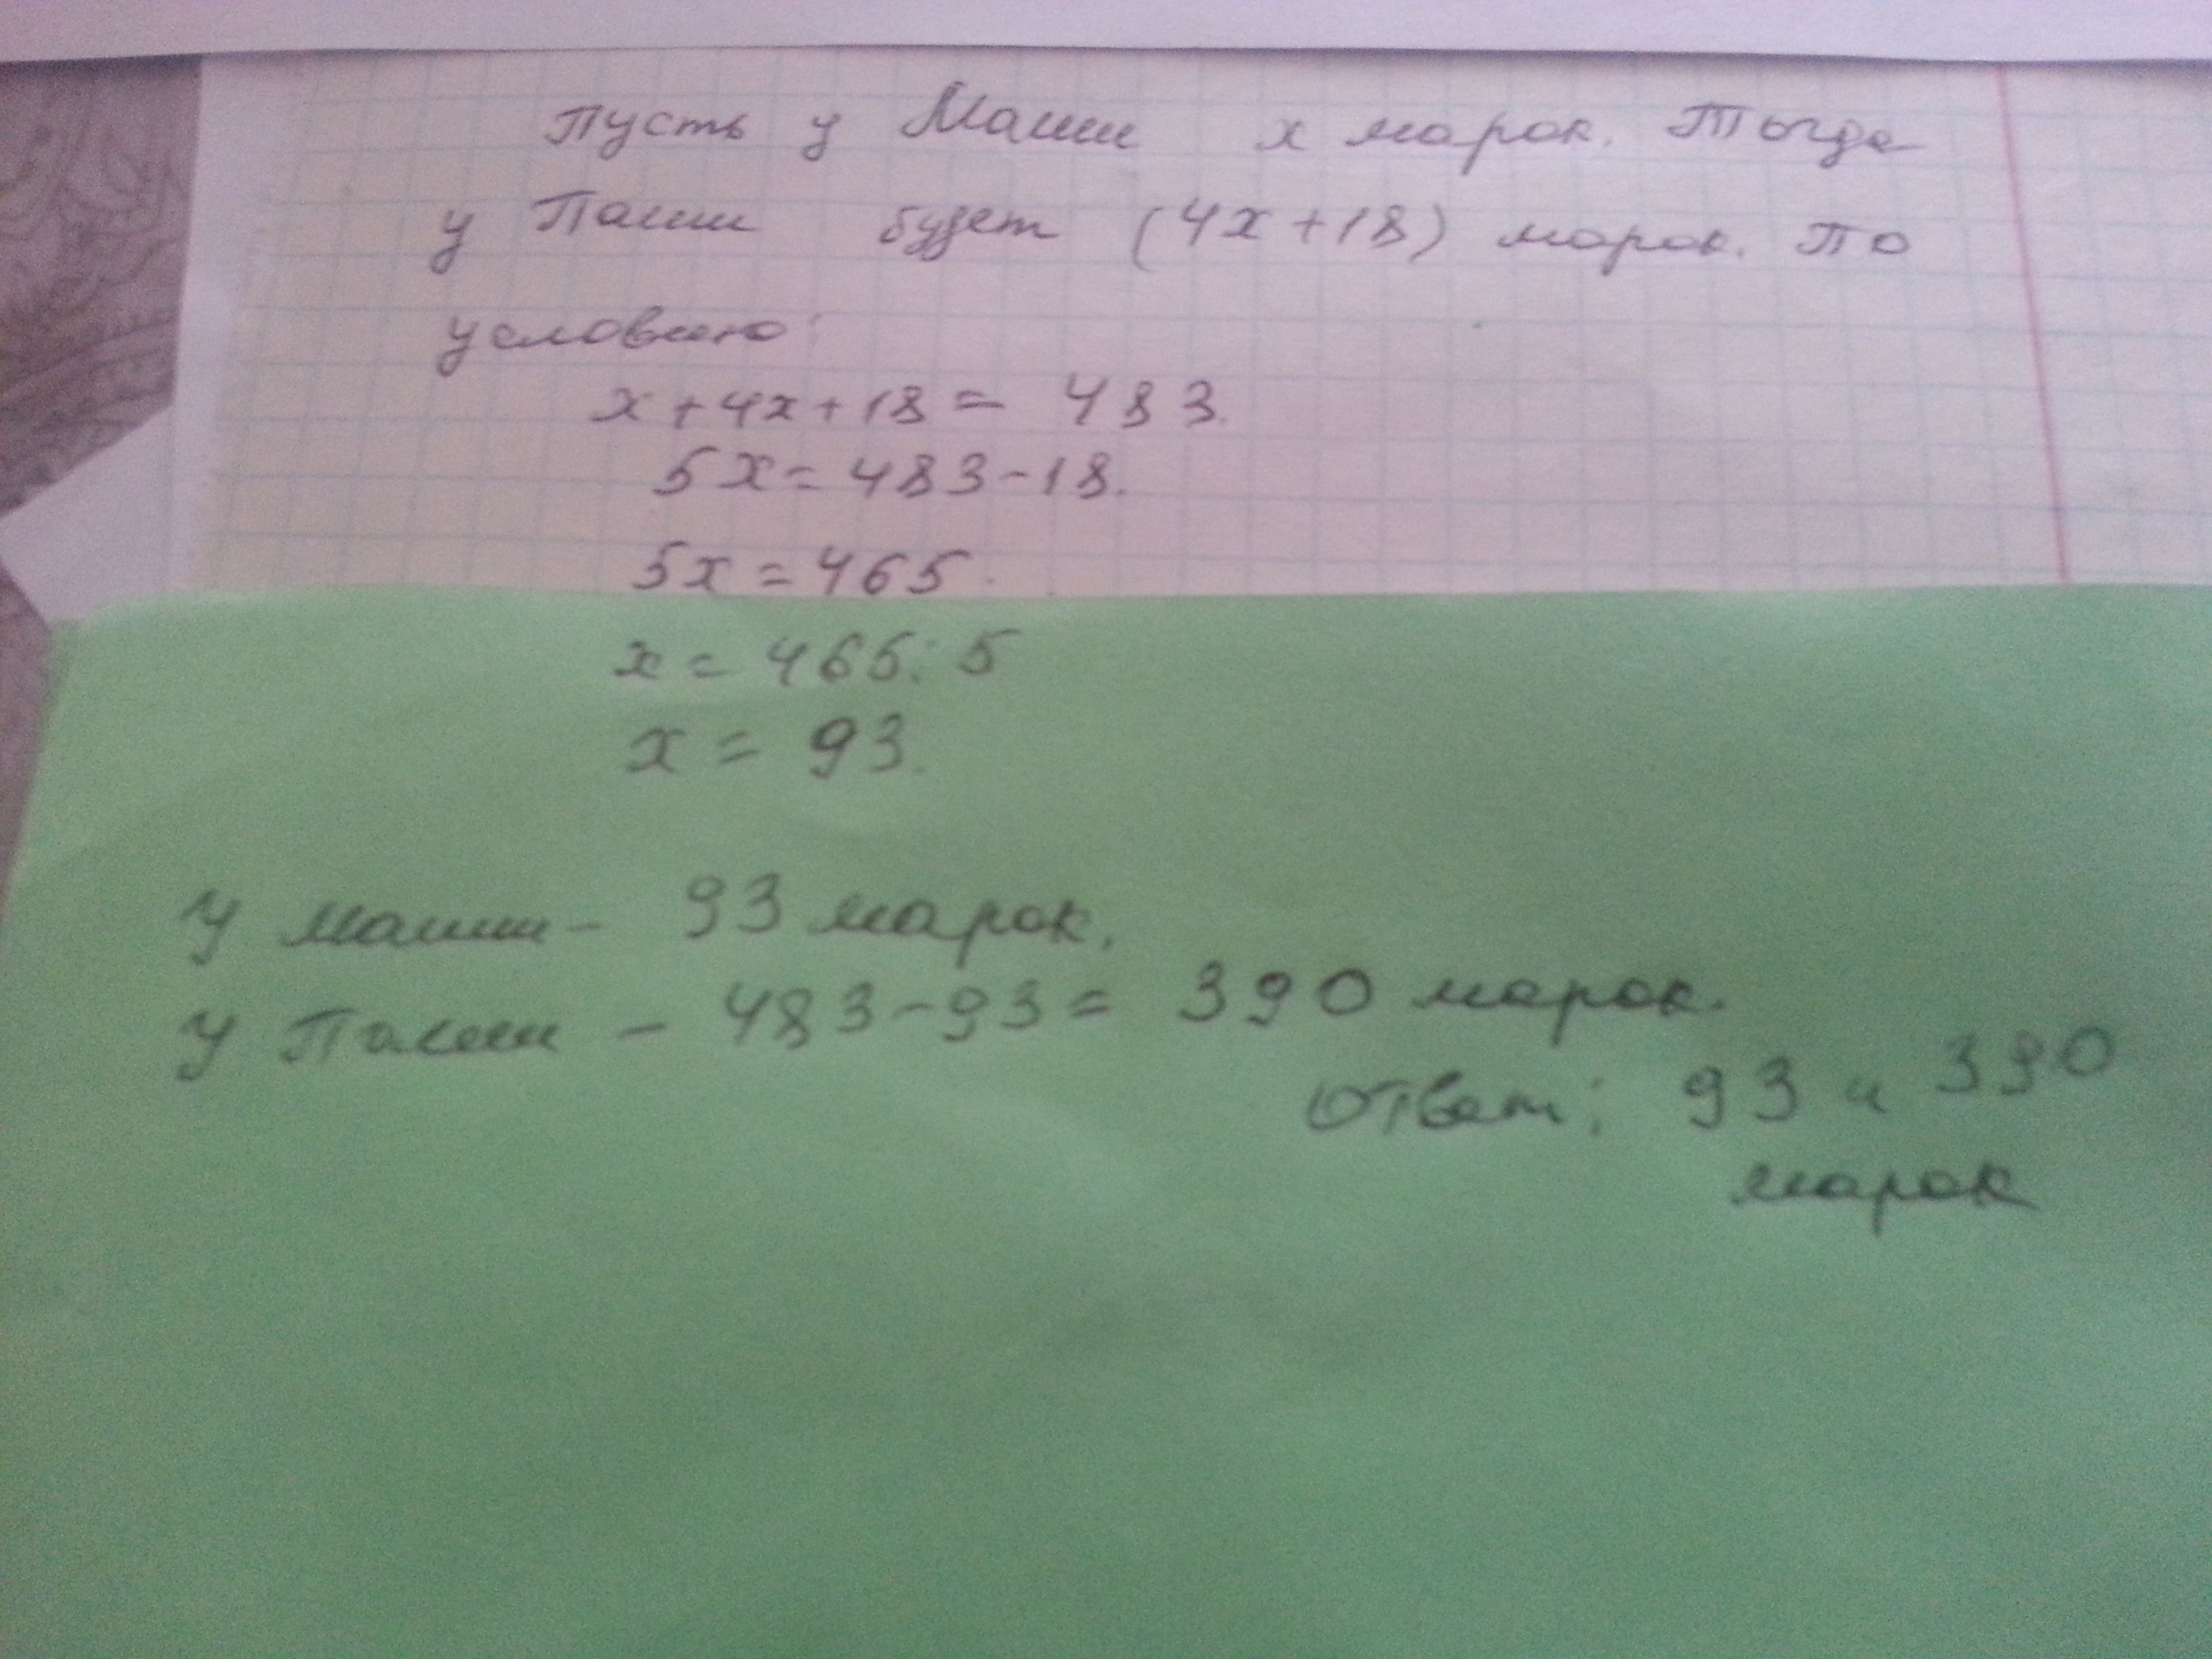 Пусть у Маши х марок. Тогда
у Паши будет (4х+18) марок. По
условию:
х+4х+18= 483.
5х=483-18.
5х=465.
х=465:5
х= 93.
У Маши- 93 марок.
У Паши - 483-93= 390 марок.
Ответ: 93 и 390
марок